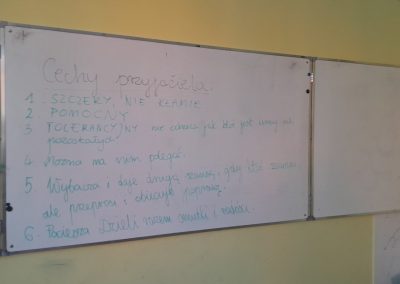 Cechy przyjaciela.
1. SZCZERY, NIE KŁAMIE
2. POMOCNY
3 TOLERANCYJNY nie odrzuca, jak ktoś jest inny niż
pozostały?
4. Można na nim polegać.
5. Wybacza i daje drugą szansę, gdy ktoś
ale przeprosi i obiecuje poprawę.
6. Pociesza Dzieli razem smutki i radości.